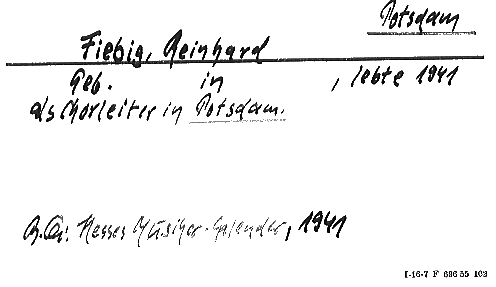 Potsdam
Fiebig, Reinhard
Geb. in , lebte 1941
als Chorleiter in Potsdam.
Hesses Musiker-Kalender, 1941
I-16-7 F 696 55 103